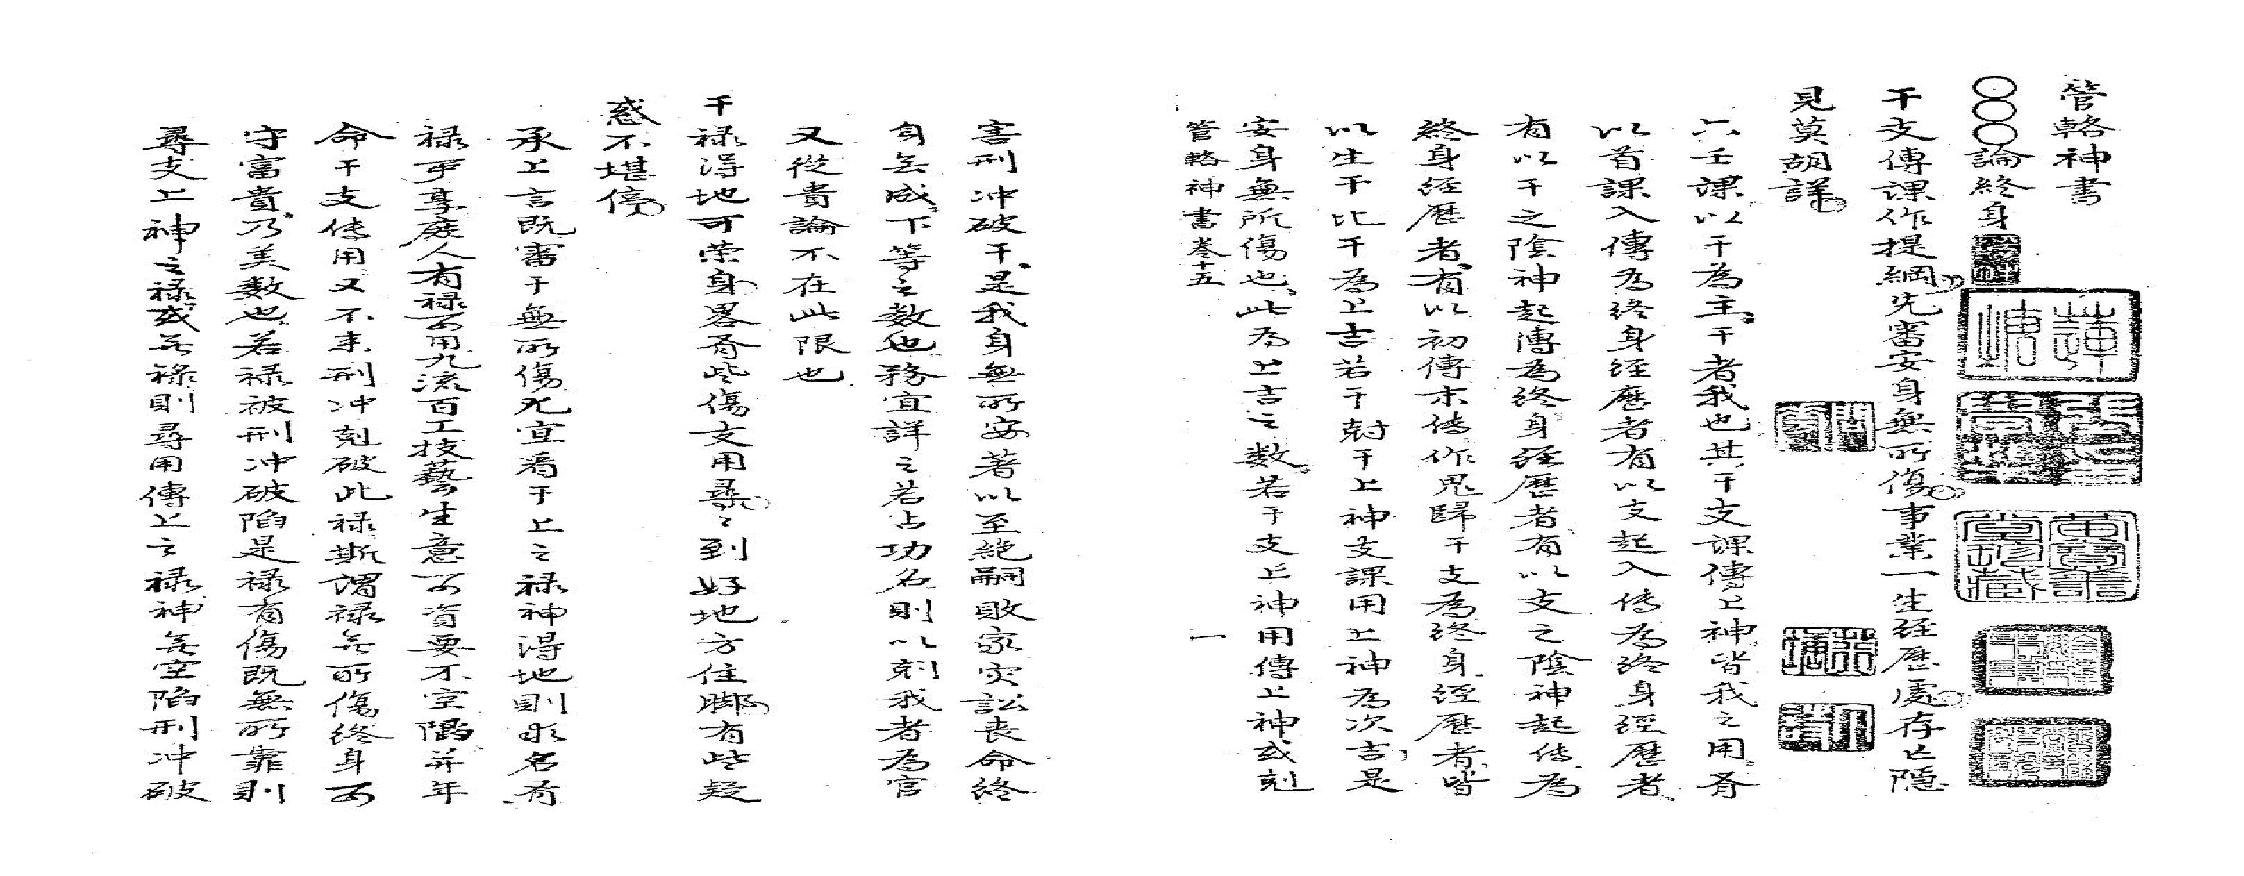 管輅神書
○○○論終身
干支傳課作提綱先審安身無所傷事業一生经歷處存亡隱
見莫胡詳
六壬課以干為主干者我也其干支課傳上神皆我之用有
以首課入傳為終身经歷者有以支起入传為终身经歷者
有以干之陰神起傳為终身经歷者有以支之陰神起传為
終身经歷者有以初傳末传作鬼歸干支為终身经歷者皆
以生干比干為上吉若干尅干上神支課用上神為次吉是
安身無所傷也此為上吉之數若干支上神用傳上神或剋
管輅神書卷十五
一
害刑冲破干是我身無所安著以至絶嗣敗家灾訟喪命终
身无成下等之数也務宜詳之若占功名則以剋我者為官
又從貴論不在此限也
干禄淂地可荣身畧有些傷支用尋尋到好地方住脚有些疑
惑不堪停
承上言既審干無所傷尤宜看干上之禄神淂地則求名有
禄可享庶人有禄用九流百工技藝生意資要不空陷并年
命干支传用又不来刑冲剋破此禄斯謂禄无所傷终身
守富貴乃美數也若禄被刑冲破陷是禄有傷既無所靠則
尋支上神之禄或无禄則尋用傳上之禄神无空陷刑冲破